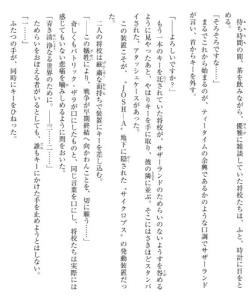 待ち時間の間、茶を飲みながら、優雅に雑談していた将校たちは、ふと、時計に目をと
める。
「そろそろですな……」
まるでこれから始まるのが、ティータイムの余興であるかのような口調でサザーランド
が言い、首からキーを外す。
「……よろしいですか？」
もう一本のキーを託されていた将校が、サザーランドのためらいのないようすを咎める
ように見やったあと、やはりキーを手に取り、彼の隣に並ぶ。そこにはさきほどスタンバ
イされた、アタッシュケースがあった。
この装置こそが、『ＪＯＳＨ－Ａ』地下に隠された『サイクロプス』の発動装置だった。
二人の将校は厳粛な面持ちで装置にキーを差し込む。
「この犠牲により、戦争が早期終結へ向かわんことを、切に願う……」
奇しくもパトリック・ザラが口にしたものと、同じ言葉を口にし、将校たちは実際には
感じてもいない悲痛を噛みしめるように間をおいた。
「青き清浄なる世界のために……３……２……」
ためらいをおぼえる者がいるとしても、誰もキーにかけた手を止めようとはしない。
「……１……」
ふたつの手が、同時にキーをひねった。